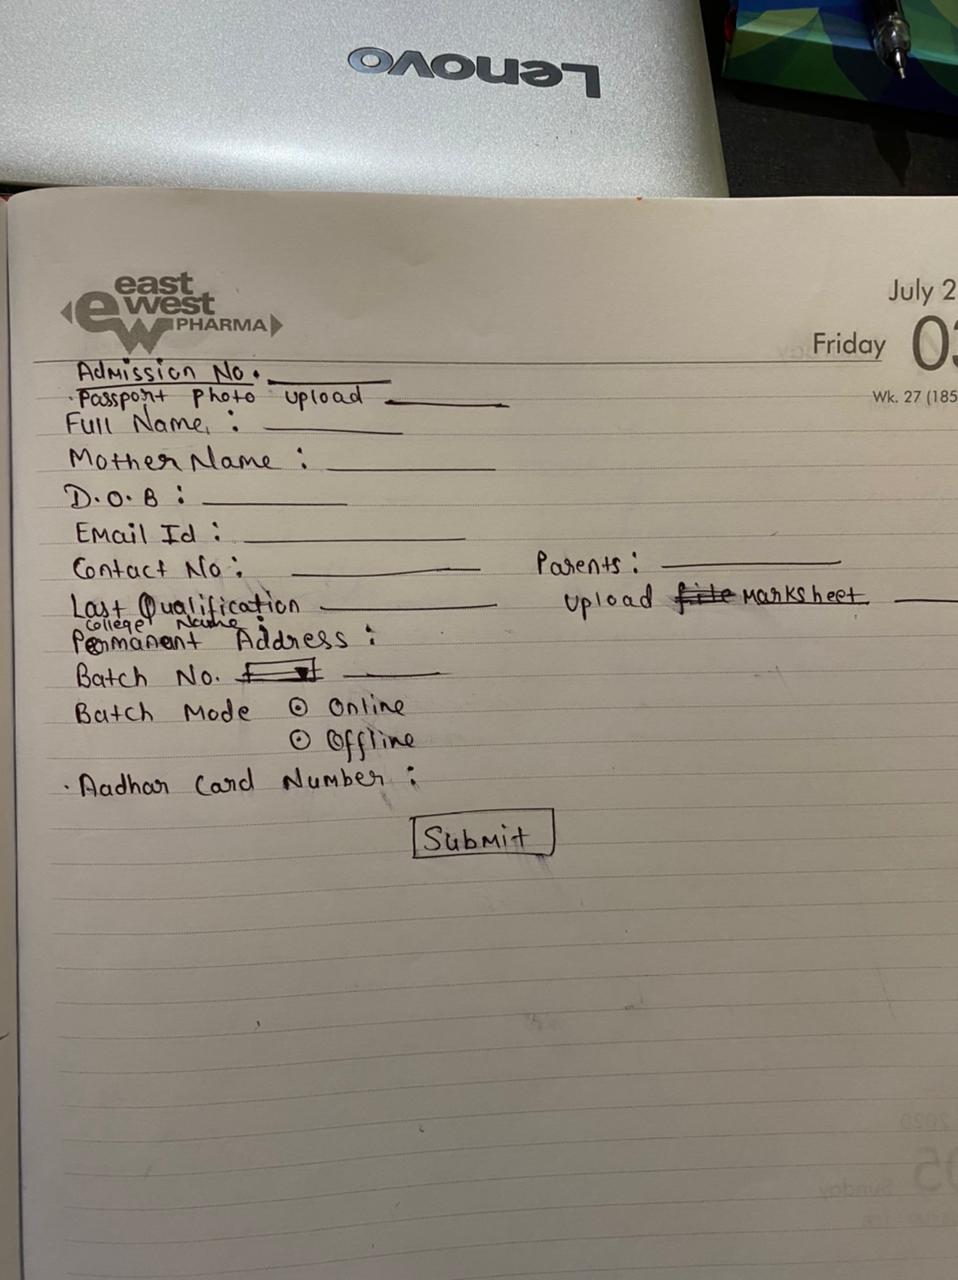 Lenovo
east
west
PHARMA
ew
July 2
Friday 03
Wk. 27 (185
Admission No.
Passport Photo upload
Full Name :
Mother Name :
D.O.B :
Email Id :
Contact No : Parents :
Last Qualification Upload file Marksheet
College Name :
Permanent Address :
Batch No.
Batch Mode Online
Offline
Aadhar Card Number :
Submit
Sunday 05